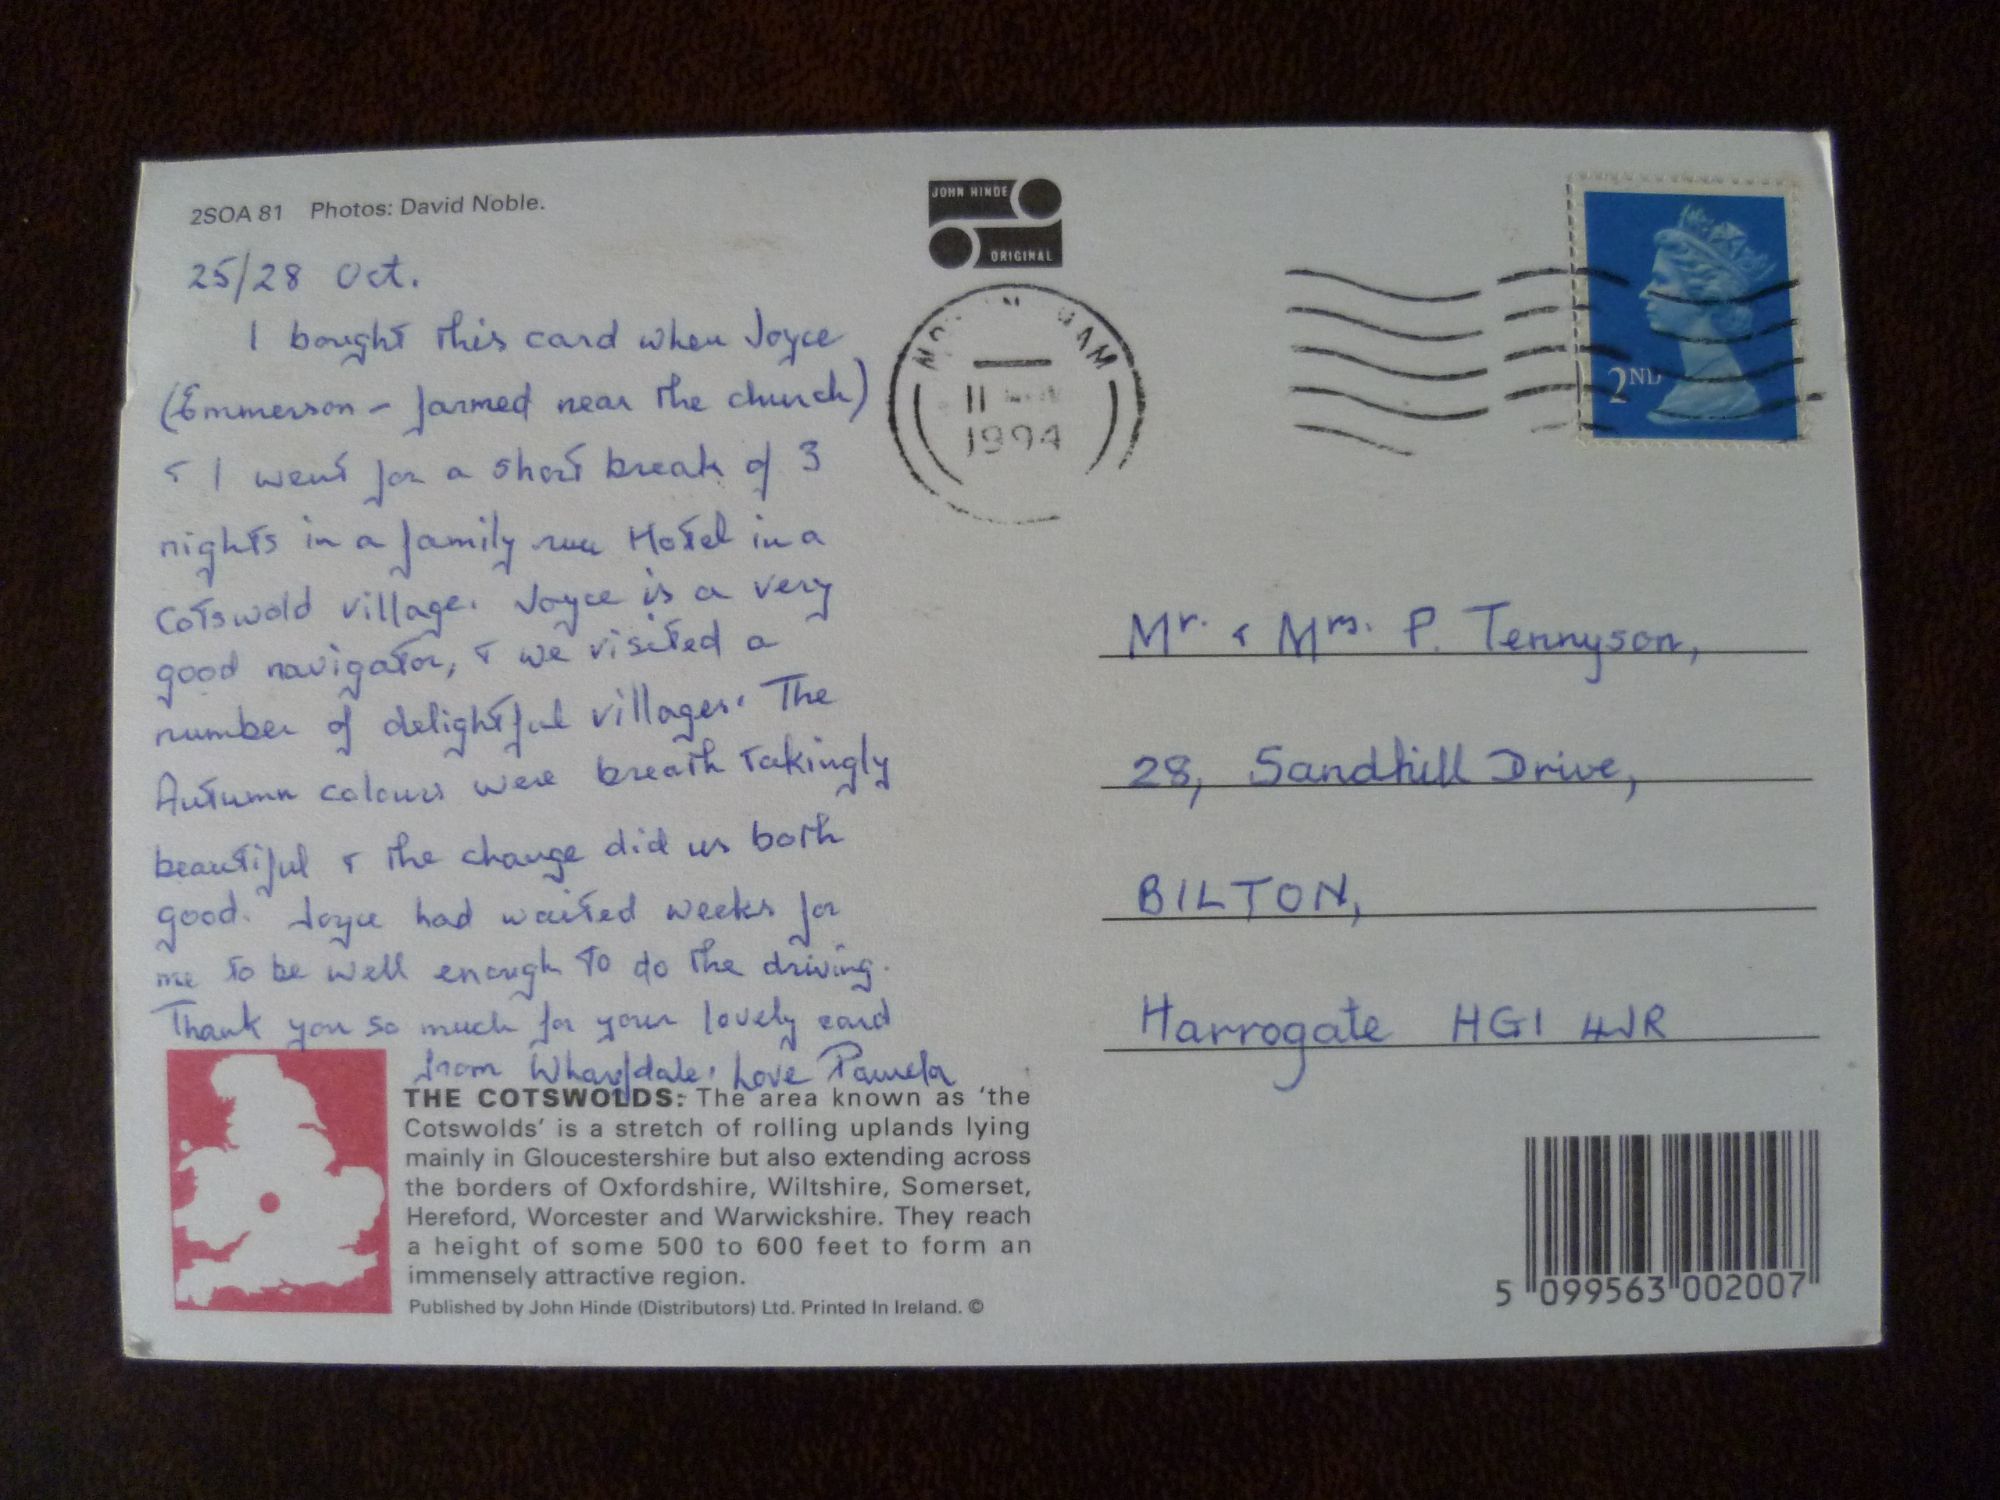 2SOA 81 Photos: David Noble.
25/28 Oct.
I bought this card when Joyce
(Emmerson - farmed near the church)
& I went for a short break of 3
nights in a family run Hotel in a
Cotswold village. Joyce is a very
good navigator, & we visited a
number of delightful villages. The
Autumn colours were breath takingly
beautiful & the change did us both
good. Joyce had waited weeks for
me to be well enough to do the driving.
Thank you so much for your lovely card
from Wharfdale. Love Pamela
THE COTSWOLDS: The area known as 'the
Cotswolds' is a stretch of rolling uplands lying
mainly in Gloucestershire but also extending across
the borders of Oxfordshire, Wiltshire, Somerset,
Hereford, Worcester and Warwickshire. They reach
a height of some 500 to 600 feet to form an
immensely attractive region.
Published by John Hinde (Distributors) Ltd. Printed In Ireland. ©
JOHN HINDE
ORIGINAL
11
1994
2ND
Mr. & Mrs. P. Tennyson,
28, Sandhill Drive,
BILTON,
Harrogate HG1 4JR
5 099563 002007